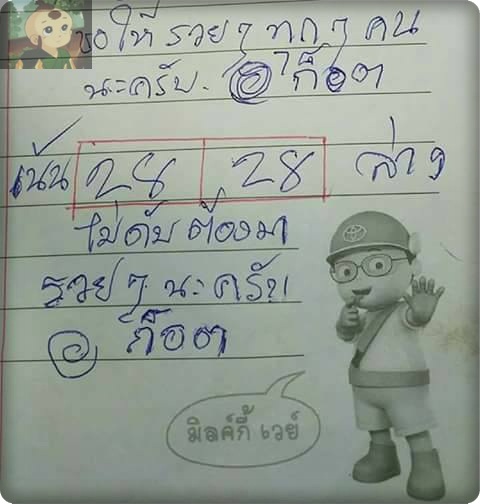 ขอให้ รวยๆ ทุกๆ คน
นะครับ. อ ก๊อต
เน้น 28 28 ล่าง
ไม่ดับ ต้องมา
รวยๆ นะ ครับ
อ ก๊อต
มิลค์กี้ เวย์